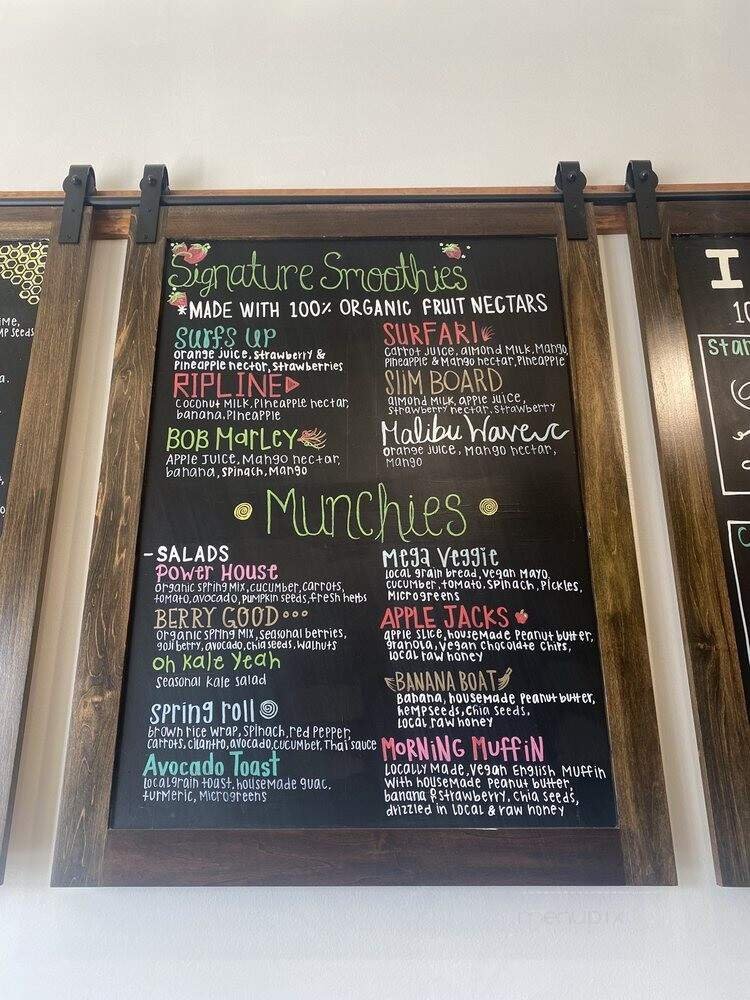 Signature Smoothies
*MADE WITH 100% ORGANIC FRUIT NECTARS
Surfs UP
orange juice, strawberry &
Pineapple nectar, strawberries
RIPLINE
Coconut MILK, Pineapple nectar,
banana, Pineapple
BOB Marley
APPle JUICE, Mango nectar,
banana, spinach, Mango
SURFARI
Carrot juice, almond Milk, Mango,
Pineapple & Mango nectar, Pineapple
SLIM BOARD
almond MILK, apple juice,
strawberry nectar, strawberry
Malibu Waver
orange juice, Mango nectar,
Mango
Munchies
-SALADS
POWER HOUSE
organic spring Mix, cucumber, carrots,
tomato, avocado, pumpkin seeds, fresh herbs
BERRY GOOD...
organic spring MIX, seasonal berries,
goji berry, avocado, chia seeds, walnuts
oh Kale Yeah
Seasonal Kale salad
Spring roll
brown rice wrap, spinach, red pepper,
carrots, cilantro, avocado, cucumber, Thai sauce
Avocado Toast
local grain toast, housemade guac,
turmeric, Microgreens
Mega Veggie
local grain bread, vegan Mayo,
cucumber, tomato, spinach, Pickles,
Microgreens
APPLE JACKS
apple slice, housemade Peanut butter,
granola, vegan chocolate chips,
local raw honey
BANANA BOAT
Banana, housemade peanut butter,
hempseeds, chia seeds,
local raw honey
MORNING MUFFIN
Locally Made, vegan English Muffin
with housemade Peanut butter,
banana & strawberry, chia seeds,
drizzled in local & raw honey
menupix